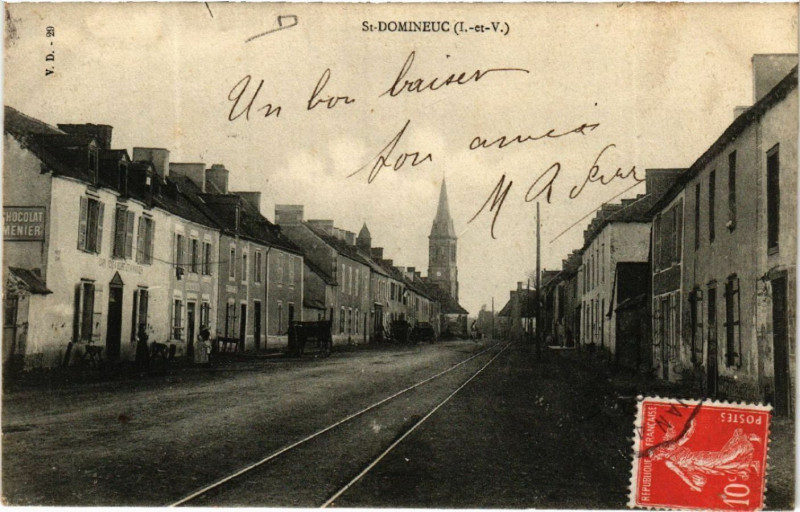 St-DOMINEUC (I.-et-V.)
V. D. - 29
Un bon baiser
ton amie
M A
CHOCOLAT
MENIER
POSTES
REPUBLIQUE FRANÇAISE
10c